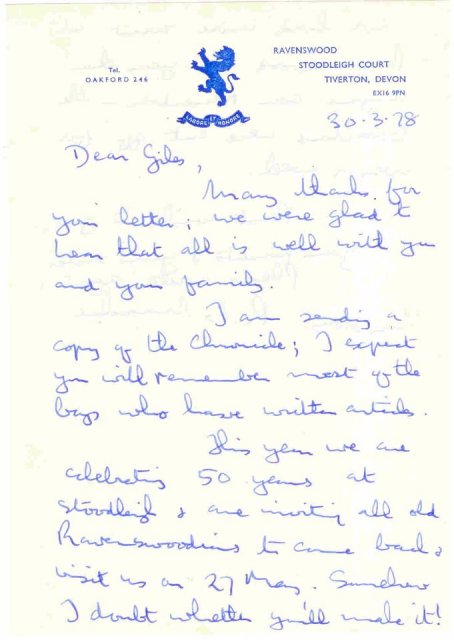 RAVENSWOOD
STOODLEIGH COURT
TIVERTON, DEVON
EX16 9PN
Tel.
OAKFORD 246
LABORE ET HONORE
30.3.78
Dear Giles,
Many thanks for
your letter; we were glad to
hear that all is well with you
and your family.
I am sending a
copy of the Chronicle; I expect
you will remember most of the
boys who have written articles.
This year we are
celebrating 50 years at
Stoodleigh & are inviting all old
Ravenswoodians to come back &
visit us on 27 May. Somehow
I doubt whether you'll make it!